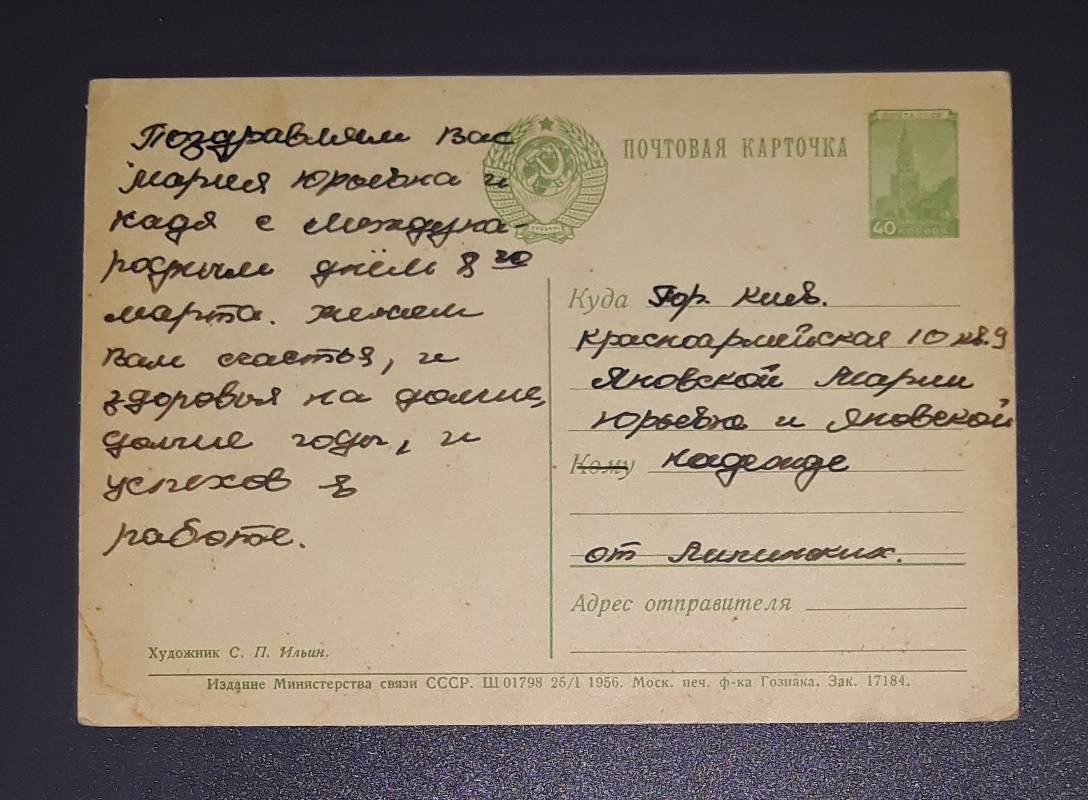 Поздравляем Вас
Мария Юрьевна и
Надя с Междуна-
родным днём 8го
марта. Желаем
Вам счастья, и
здоровья на долгие,
долгие годы, и
успехов в
работе.
ПОЧТОВАЯ КАРТОЧКА
ПОЧТА СССР
40 КОПЕЕК
Куда Гор. Киев.
Красноармейская 10 кв. 9
Яновской Марии
Юрьевне и Яновской
Кому Надежде
от Липинских.
Адрес отправителя
Художник С. П. Ильин.
Издание Министерства связи СССР. Ш 01798 25/I 1956. Моск. печ. ф-ка Гознака. Зак. 17184.